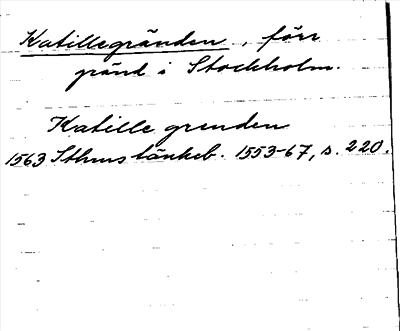 Katillegränden, förr
gränd i Stockholm.
Katille grenden
1563 Sthms tänkeb. 1553-67, s. 220.